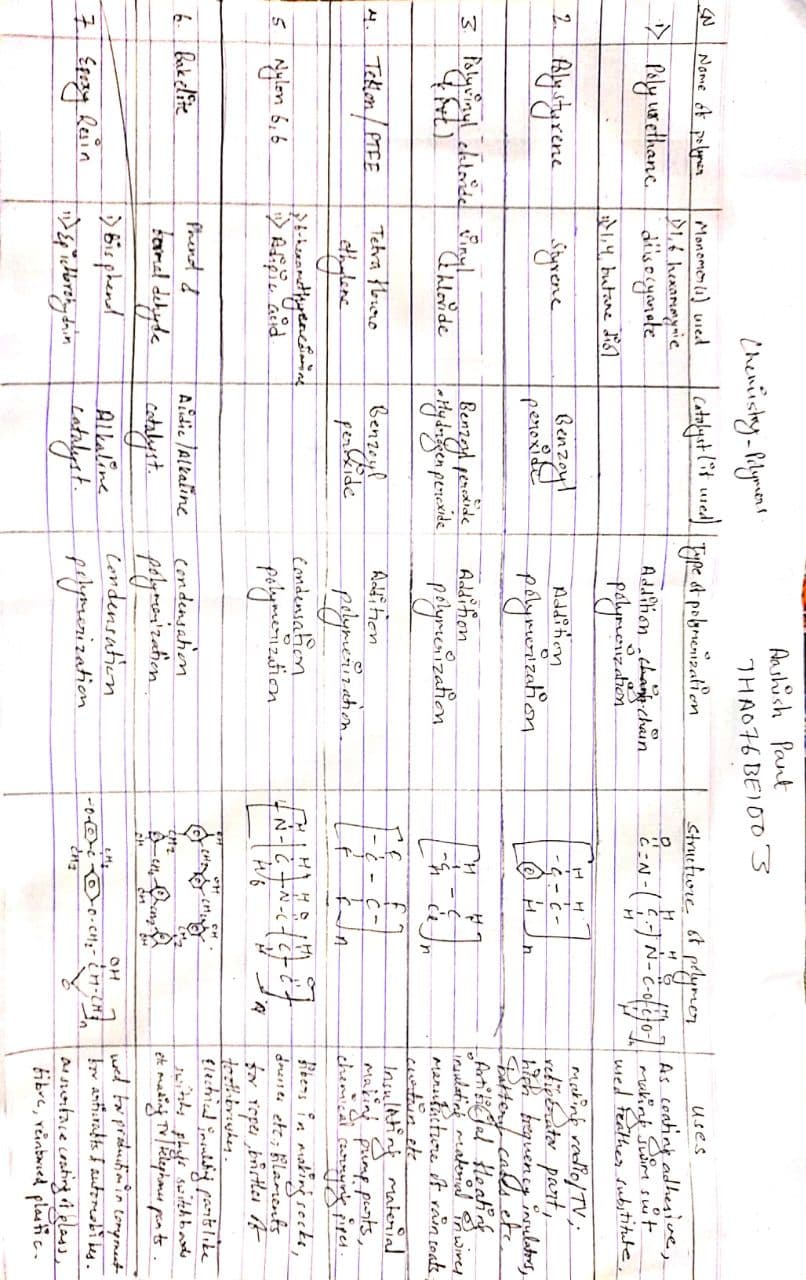 Aashish Pant
Chemistry-Polymers THA076BE1003
SN Name of polymer Monomer(s) used catalyst (if used) Type of polymerization structure of polymer uses
1) Polyurethane
i) 1,6 hexammynic
diisocyanate
ii) 1,4 butane diol
Addition chain
polymerization
As coating adhesive,
making swim suit
used leather substitute.
2. Polystyrene
styrene
Benzoyl
peroxide
Addition
polymerization
making radio/TV,
refrigerator part,
high frequency insulators,
battery cases etc.
3 Polyvinyl chloride
(PVC)
vinyl
chloride
Benzoyl peroxide
Hydrogen peroxide
Addition
polymerization
Artificial floating
insulating material in wires
manufacture of rain coats,
curtain etc
4. Teflon/PTFE
Tetra flouro
ethylene
Benzoyl
peroxide
Addition
polymerization.
Insulating material
making pump parts,
chemical carrying pipes.
5 Nylon 6,6
ii) Adipic acid
condensation
polymerization
fibers in making socks,
dresses etc, filaments
for ropes, bristles of
toothbrushes.
6. Bakelite
Phenol &
formaldehyde
Acidic/Alkaline
catalyst.
condensation
polymerization.
electrical insulating parts like
switch, plugs switchboards
etc making TV/telephone parts.
7. Epoxy Resin
i) Bisphenol
ii) Epichlorohydrin
Alkaline
catalyst.
condensation
polymerization
used for production in component
for aircrafts & automobiles.
as surface coating of glass,
fibre, reinforced plastic.